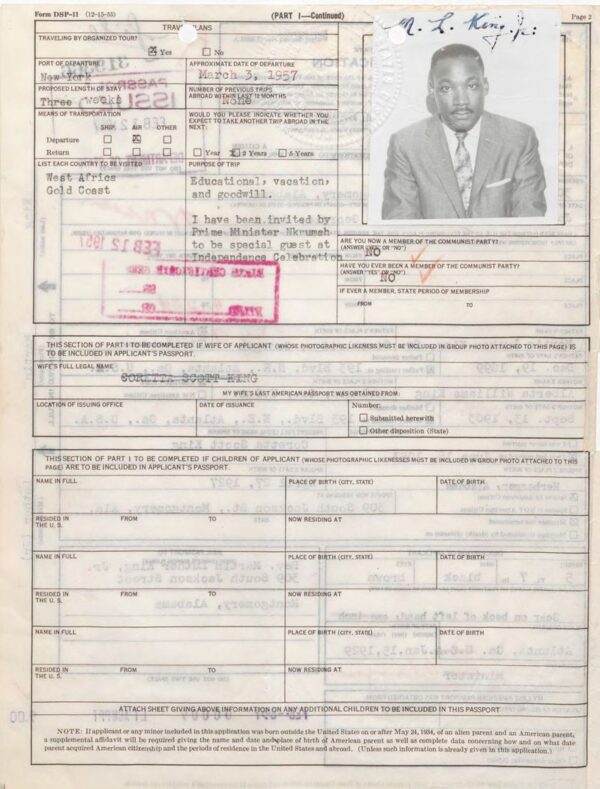 Form DSP-11 (12-15-55)
(PART I—Continued)
Page 2
M. L. King, Jr.
TRAVEL PLANS
TRAVELING BY ORGANIZED TOUR?
Yes
No
PORT OF DEPARTURE
New York
APPROXIMATE DATE OF DEPARTURE
March 3, 1957
PROPOSED LENGTH OF STAY
Three weeks
NUMBER OF PREVIOUS TRIPS
ABROAD WITHIN LAST 12 MONTHS
None
MEANS OF TRANSPORTATION
SHIP AIR OTHER
Departure
Return
WOULD YOU PLEASE INDICATE WHETHER YOU
EXPECT TO TAKE ANOTHER TRIP ABROAD IN THE
NEXT:
Year 2 Years 5 Years
LIST EACH COUNTRY TO BE VISITED
West Africa
Gold Coast
PURPOSE OF TRIP
Educational, vacation,
and goodwill.
I have been invited by
Prime Minister Nkrumah
to be special guest at
Independence Celebration
FEB 12 1957
BIRTH CERTIFICATE
ARE YOU NOW A MEMBER OF THE COMMUNIST PARTY?
(ANSWER "YES" OR "NO")
NO
HAVE YOU EVER BEEN A MEMBER OF THE COMMUNIST PARTY?
(ANSWER "YES" OR "NO")
NO
IF EVER A MEMBER, STATE PERIOD OF MEMBERSHIP
FROM TO
THIS SECTION OF PART I TO BE COMPLETED IF WIFE OF APPLICANT (WHOSE PHOTOGRAPHIC LIKENESS MUST BE INCLUDED IN GROUP PHOTO ATTACHED TO THIS PAGE) IS
TO BE INCLUDED IN APPLICANT'S PASSPORT.
WIFE'S FULL LEGAL NAME
CORETTA SCOTT KING
MY WIFE'S LAST AMERICAN PASSPORT WAS OBTAINED FROM:
LOCATION OF ISSUING OFFICE
DATE OF ISSUANCE
Number:
Submitted herewith
Other disposition (State)
THIS SECTION OF PART I TO BE COMPLETED IF CHILDREN OF APPLICANT (WHOSE PHOTOGRAPHIC LIKENESSES MUST BE INCLUDED IN GROUP PHOTO ATTACHED TO THIS
PAGE) ARE TO BE INCLUDED IN APPLICANT'S PASSPORT.
NAME IN FULL
PLACE OF BIRTH (CITY, STATE)
DATE OF BIRTH
RESIDED IN
THE U. S.
FROM TO
NOW RESIDING AT
NAME IN FULL
PLACE OF BIRTH (CITY, STATE)
DATE OF BIRTH
RESIDED IN
THE U. S.
FROM TO
NOW RESIDING AT
NAME IN FULL
PLACE OF BIRTH (CITY, STATE)
DATE OF BIRTH
RESIDED IN
THE U. S.
FROM TO
NOW RESIDING AT
ATTACH SHEET GIVING ABOVE INFORMATION ON ANY ADDITIONAL CHILDREN TO BE INCLUDED IN THIS PASSPORT
NOTE: If applicant or any minor included in this application was born outside the United States on or after May 24, 1934, of an alien parent and an American parent,
a supplemental affidavit will be required giving the name and date and place of birth of American parent as well as complete data concerning how and on what date
parent acquired American citizenship and the periods of residence in the United States and abroad. (Unless such information is already given in this application.)